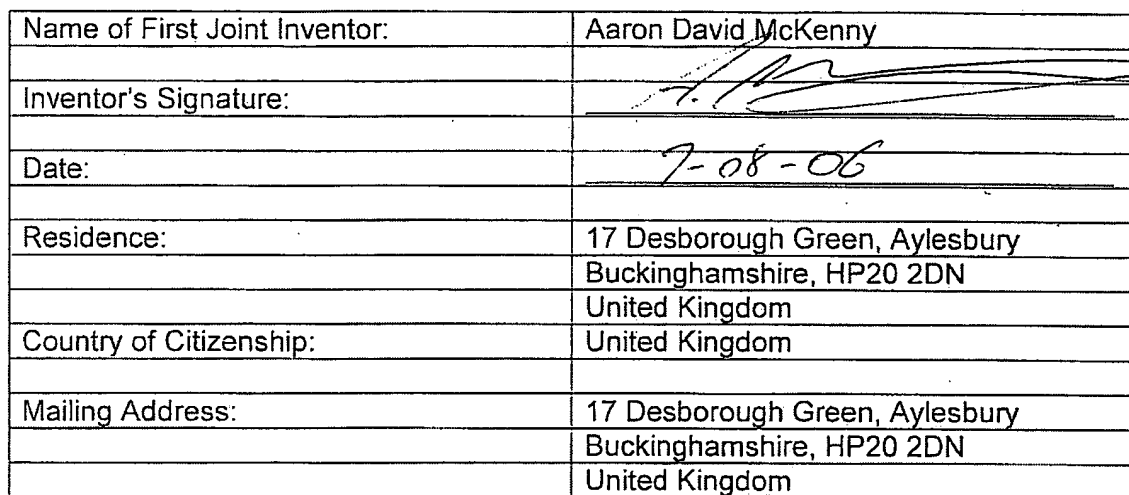 Name of First Joint Inventor: Aaron David McKenny
Inventor's Signature:
Date: 7-08-06
Residence: 17 Desborough Green, Aylesbury
Buckinghamshire, HP20 2DN
United Kingdom
Country of Citizenship: United Kingdom
Mailing Address: 17 Desborough Green, Aylesbury
Buckinghamshire, HP20 2DN
United Kingdom